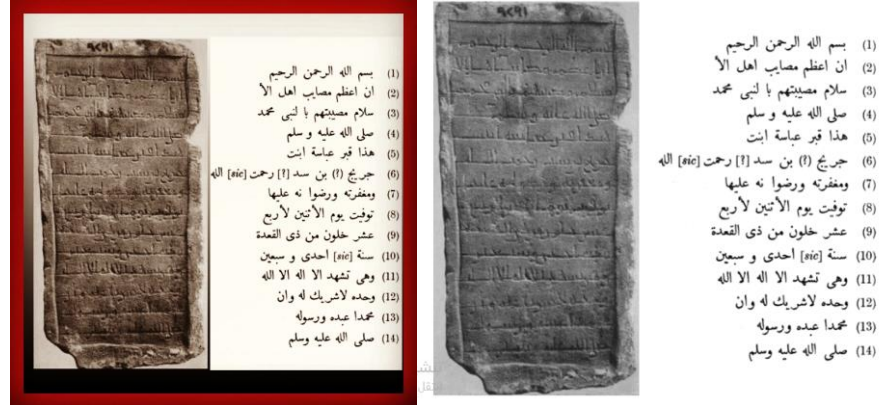 ٩٢٩١
(1) بسم الله الرحمن الرحيم
(2) ان اعظم مصايب اهل الأ
(3) سلام مصيبتهم با لنبى محمد
(4) صلى الله عليه و سلم
(5) هذا قبر عباسة ابنت
(6) جريج (?) بن سد [?] رحمت [sic] الله
(7) ومغفرته ورضوا نه عليها
(8) توفيت يوم الأثنين لأربع
(9) عشر خلون من ذى القعدة
(10) سنة [sic] أحدى و سبعين
(11) وهى تشهد الا اله الا الله
(12) وحده لاشريك له وان
(13) محمدا عبده ورسوله
(14) صلى الله عليه وسلم
٩٢٩١
(1) بسم الله الرحمن الرحيم
(2) ان اعظم مصايب اهل الأ
(3) سلام مصيبتهم با لنبى محمد
(4) صلى الله عليه و سلم
(5) هذا قبر عباسة ابنت
(6) جريج (?) بن سد [?] رحمت [sic] الله
(7) ومغفرته ورضوا نه عليها
(8) توفيت يوم الأثنين لأربع
(9) عشر خلون من ذى القعدة
(10) سنة [sic] أحدى و سبعين
(11) وهى تشهد الا اله الا الله
(12) وحده لاشريك له وان
(13) محمدا عبده ورسوله
(14) صلى الله عليه وسلم